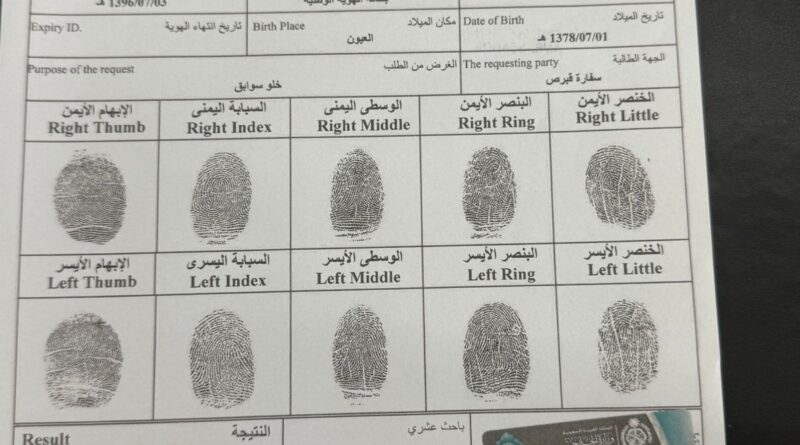 1396/07/03 هـ
Expiry ID. تاريخ انتهاء الهوية Birth Place مكان الميلاد Date of Birth تاريخ الميلاد
العيون 1378/07/01 هـ
Purpose of the request الغرض من الطلب The requesting party الجهة الطالبة
خلو سوابق سفارة قبرص
الإبهام الأيمن السبابة اليمنى الوسطى اليمنى البنصر الأيمن الخنصر الأيمن
Right Thumb Right Index Right Middle Right Ring Right Little
الإبهام الأيسر السبابة اليسرى الوسطى الأيسر البنصر الأيسر الخنصر الأيسر
Left Thumb Left Index Left Middle Left Ring Left Little
Result النتيجة باحث عشري